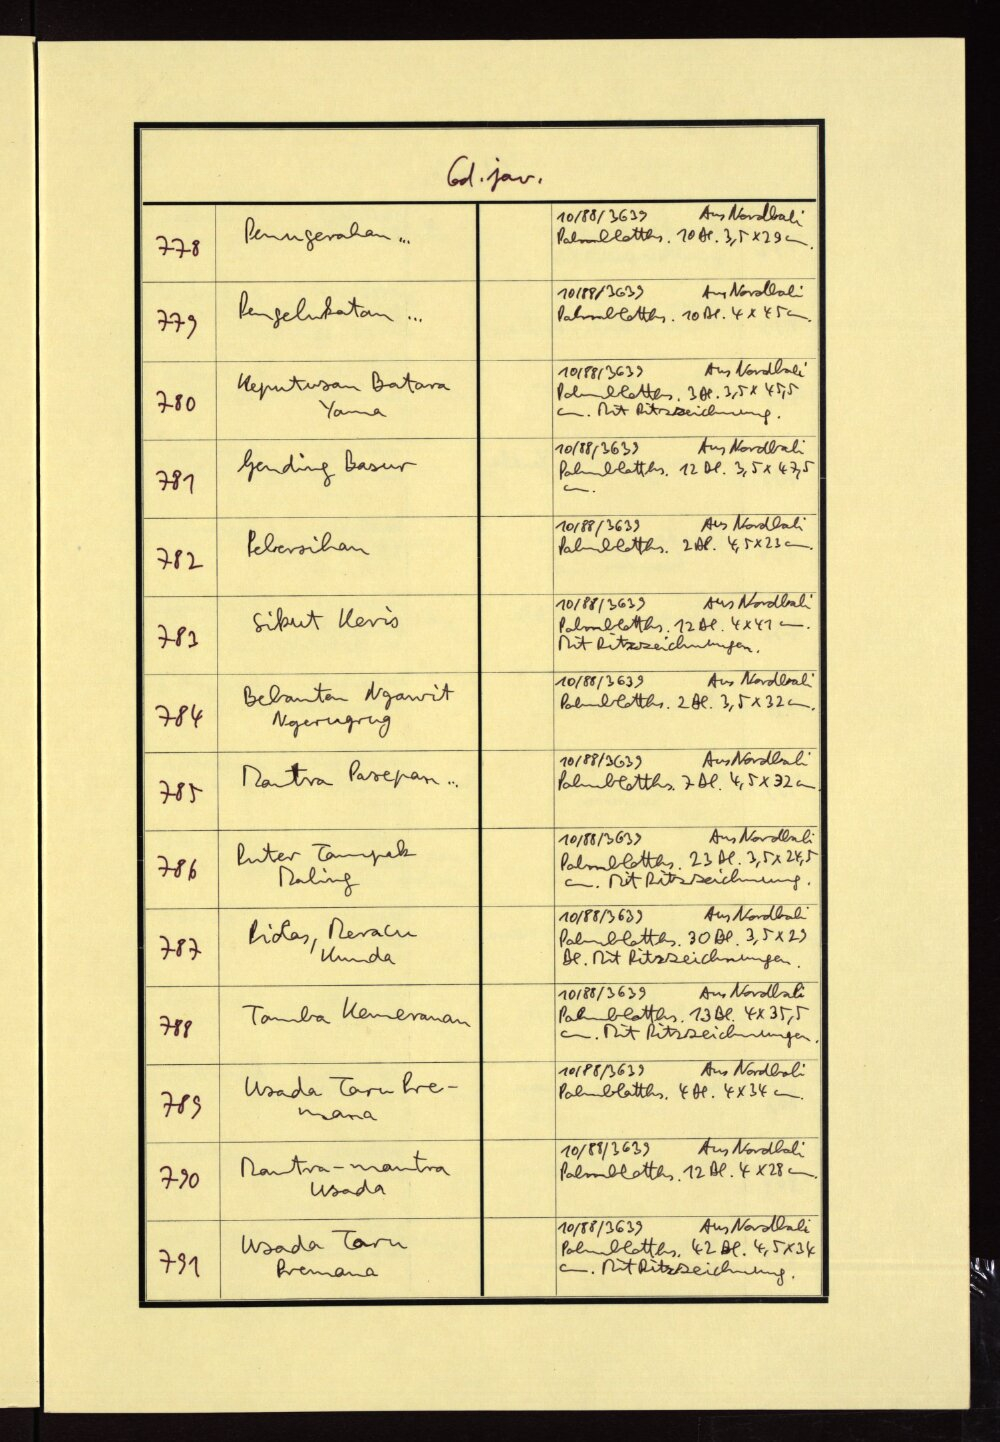 Cd. jav.
778 Penugerahan ... 10/88/3639 Aus Nordbali
Palmblatths. 10 Bl. 3,5 x 29 cm.
779 Pengelukatan ... 10/88/3639 Aus Nordbali
Palmblatths. 10 Bl. 4 x 45 cm.
780 Keputusan Batara 10/88/3639 Aus Nordbali
Yama Palmblatths. 3 Bl. 3,5 x 45,5
cm. Mit Ritzzeichnung.
781 Gending Basur 10/88/3639 Aus Nordbali
Palmblatths. 12 Bl. 3,5 x 47,5
cm.
782 Pebersihan 10/88/3639 Aus Nordbali
Palmblatths. 2 Bl. 4,5 x 23 cm.
783 Sikut Keris 10/88/3639 Aus Nordbali
Palmblatths. 12 Bl. 4 x 41 cm.
Mit Ritzzeichnungen.
784 Bebanten Ngawit 10/88/3639 Aus Nordbali
Ngerugrug Palmblatths. 2 Bl. 3,5 x 32 cm.
785 Mantra Pasepan ... 10/88/3639 Aus Nordbali
Palmblatths. 7 Bl. 4,5 x 32 cm.
786 Puter Tampak 10/88/3639 Aus Nordbali
Maling Palmblatths. 23 Bl. 3,5 x 24,5
cm. Mit Ritzzeichnung.
787 Kunda 10/88/3639 Aus Nordbali
Palmblatths. 30 Bl. 3,5 x 29
Bl. Mit Ritzzeichnungen.
788 Tamba Kemeranan 10/88/3639 Aus Nordbali
Palmblatths. 13 Bl. 4 x 35,5
cm. Mit Ritzzeichnungen.
789 Usada Taru Pre- 10/88/3639 Aus Nordbali
mana Palmblatths. 4 Bl. 4 x 34 cm.
790 Mantra-mantra 10/88/3639 Aus Nordbali
Usada Palmblatths. 12 Bl. 4 x 28 cm.
791 Usada Taru 10/88/3639 Aus Nordbali
Premana Palmblatths. 42 Bl. 4,5 x 34
cm. Mit Ritzzeichnung.